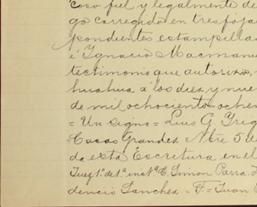 coro fiel y legalmente de
go corregado en tres fojas
pondientes estampillas
é Ygnacio Macmanu
testimonio que autorizo,
huahua á los diez y nueve
de mil ochocientos ochen
= Un signo = Luis G. Yrig
Casas Grandes, Nbre 5 de
do esta Escritura en el
Juez 1º del inst. C. Simon Parra
dencio Sanchez = F = Juan